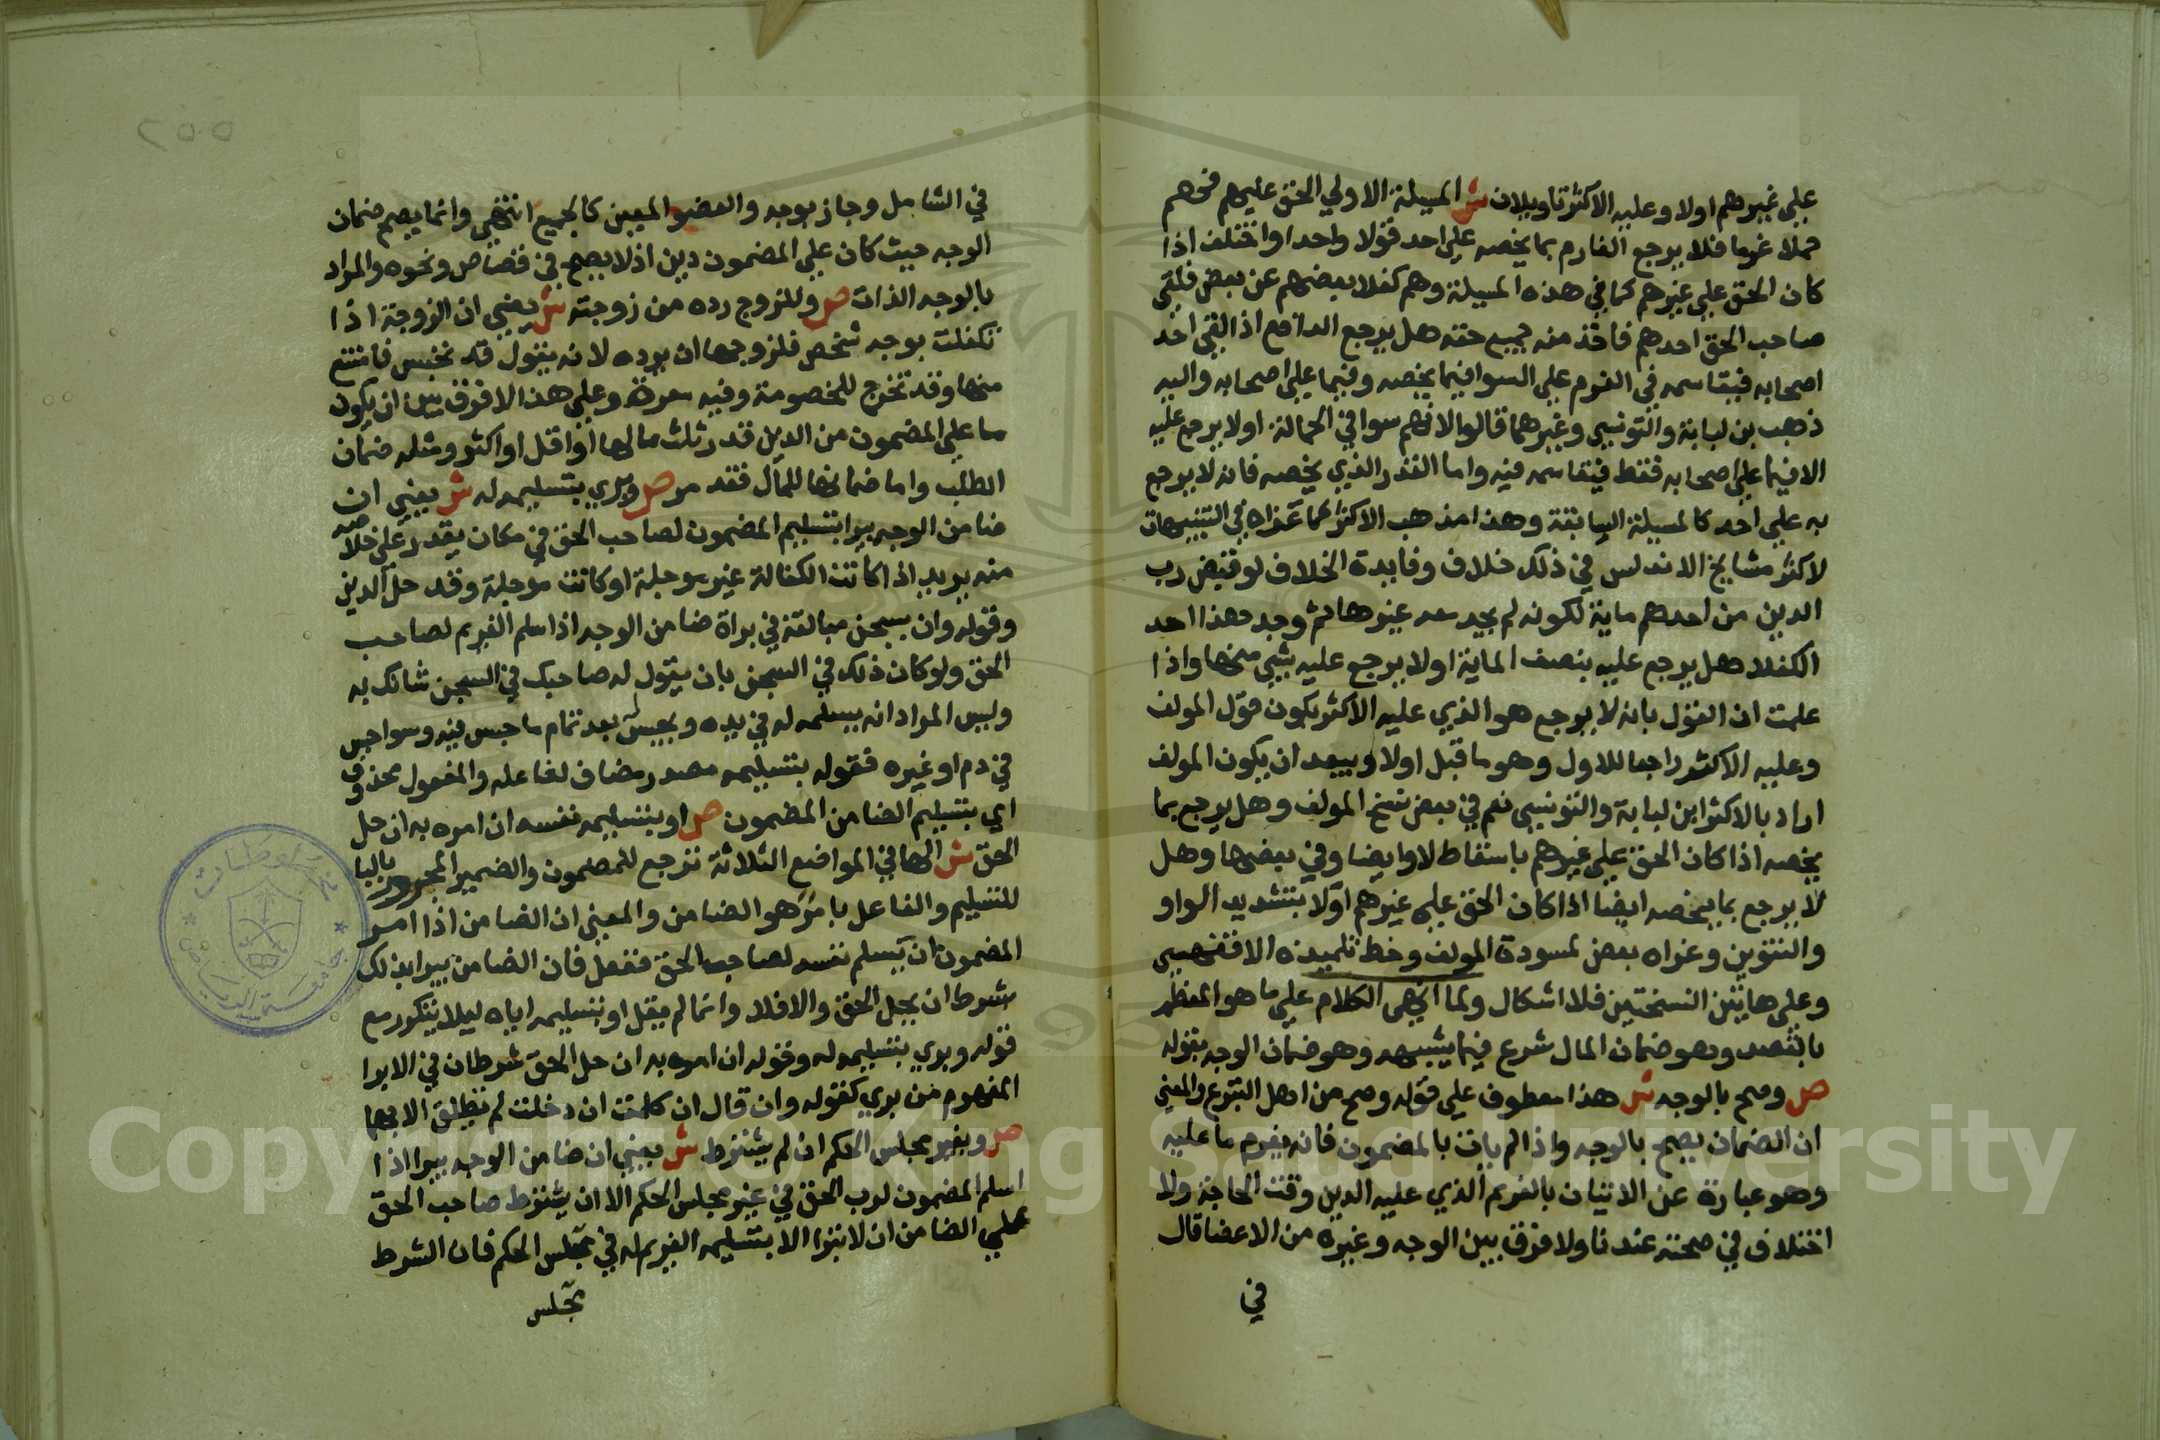 على غيرهم اولا وعليه الاكثر تاويلان ش المسيلة الاولي الحق عليهم فهم
حملا غرما فلا يرجع الغارم بما يخصه علي احد قولا واحدا واختلف اذا
كان الحق علي غيرهم كما في هذه المسيلة وهم كفلا بعضهم عن بعض فلقي
صاحب الحق احدهم فاخذ منه جميع حقه هل يرجع الدافع اذا لقي احد
اصحابه فيقاسمه في الغرم علي السوا فيما يخصه وفيما علي اصحابه واليه
ذهب بن لبابة والتونسي وغيرهما قالوا لانهم سوا في الحمالة اولا يرجع عليه
الا فيما علي اصحابه فقط فيقاسمه فيه واما القدر الذي يخصه فانه لا يرجع
به علي احد كالمسيلة السابقة وهذا مذهب الاكثر كما عزاه في التنبيهات
لاكثر مشايخ الاندلس في ذلك خلاف وفايدة الخلاف لو قبض رب
الدين من احدهم ماية لكونه لم يجد معه غيرها ثم وجد هذا احد
الكفلا هل يرجع عليه بنصف الماية اولا يرجع عليه بشي منها واذا
علمت ان القول بانه لا يرجع هو الذي عليه الاكثر يكون قول المولف
وعليه الاكثر راجعا للاول وهو ما قبل اولا ويبعد ان يكون المولف
اراد بالاكثر ابن لبابة والتونسي نعم في بعض نسخ المولف وهل يرجع بما
يخصه اذا كان الحق علي غيرهم باسقاط لا وايضا وفي بعضها وهل
لا يرجع بما يخصه ايضا اذا كان الحق علي غيرهم اولا بتشديد الواو
والتنوين وعزاه بعض لمسودة المولف وخط تلميذه الاقفهسي
وعلي هاتين النسختين فلا اشكال ولما انهى الكلام علي ما هو المنظور
بالقصد وهو ضمان المال شرع فيما يشبهه وهو ضمان الوجه بقوله
ص وصح بالوجه ش هذا معطوف علي قوله وصح من اهل التبرع والمعني
ان الضمان يصح بالوجه واذا لم يات بالمضمون فانه يغرم ما عليه
وهو عبارة عن الاتيان بالغريم الذي عليه الدين وقت الحاجة ولا
اختلاف في صحته عندنا ولا فرق بين الوجه وغيره من الاعضا قال
في
٢٥٥
في الشامل وجاز بوجه والعضو المعين كالجميع انتهي وانما يصح ضمان
الوجه حيث كان علي المضمون دين اذ لا يصح في قصاص ونحوه والمراد
بالوجه الذات ص وللزوج رده من زوجته ش يعني ان الزوجة اذا
تكفلت بوجه شخص فلزوجها ان يرده لانه يقول قد تحبس فامتنع
منها وقد تخرج للخصومة وفيه معرة وعلي هذا لا فرق بين ان يكون
ما علي المضمون من الدين قدر ثلث مالها او اقل او اكثر ومثله ضمان
الطلب واما ضمانها للمال فقد مر ص وبري بتسليمه له ش يعني ان
ضامن الوجه يبرا بتسليم المضمون لصاحب الحق في مكان يقدر علي خلاصه
منه يريد اذا كانت الكفالة غير موجلة او كانت موجلة وقد حل الدين
وقوله وان بسجن مبالغة في براة ضامن الوجه اذا سلم الغريم لصاحب
الحق ولو كان ذلك في السجن بان يقول له صاحبك في السجن شانك به
وليس المراد انه يسلمه له في يده ويحبس له بعد تمام ما حبس فيه وسوا حبس
في دم او غيره فقوله بتسليمه مصدر مضاف لفاعله والمفعول محذوف
اي بتسليم الضامن المضمون ص او بتسليمه نفسه ان امره به ان حل
الحق ش الها في المواضع الثلاثة ترجع للمضمون والضمير المجرور باليا
للتسليم والفاعل بامره هو الضامن والمعني ان الضامن اذا امر
المضمون ان يسلم نفسه لصاحب الحق ففعل فان الضامن يبرا بذلك
بشرط ان يحل الحق والا فلا وانما لم يقل او بتسليمه اياه ليلا يتكرر مع
قوله وبري بتسليمه له وقوله ان امره به ان حل الحق شرطان في الابرا
المفهوم من بري كقوله وان قال ان كلمت ان دخلت لم تطلق الا بهما
ص وبغير مجلس الحكم ان لم يشترط ش يعني ان ضامن الوجه يبرا اذا
اسلم المضمون لرب الحق في غير مجلس الحكم الا ان يشترط صاحب الحق
علي الضامن ان لا تبرا الا بتسليمه الغريم له في مجلس الحكم فان الشرط
مجلس
Copyright © King Saud University
1957